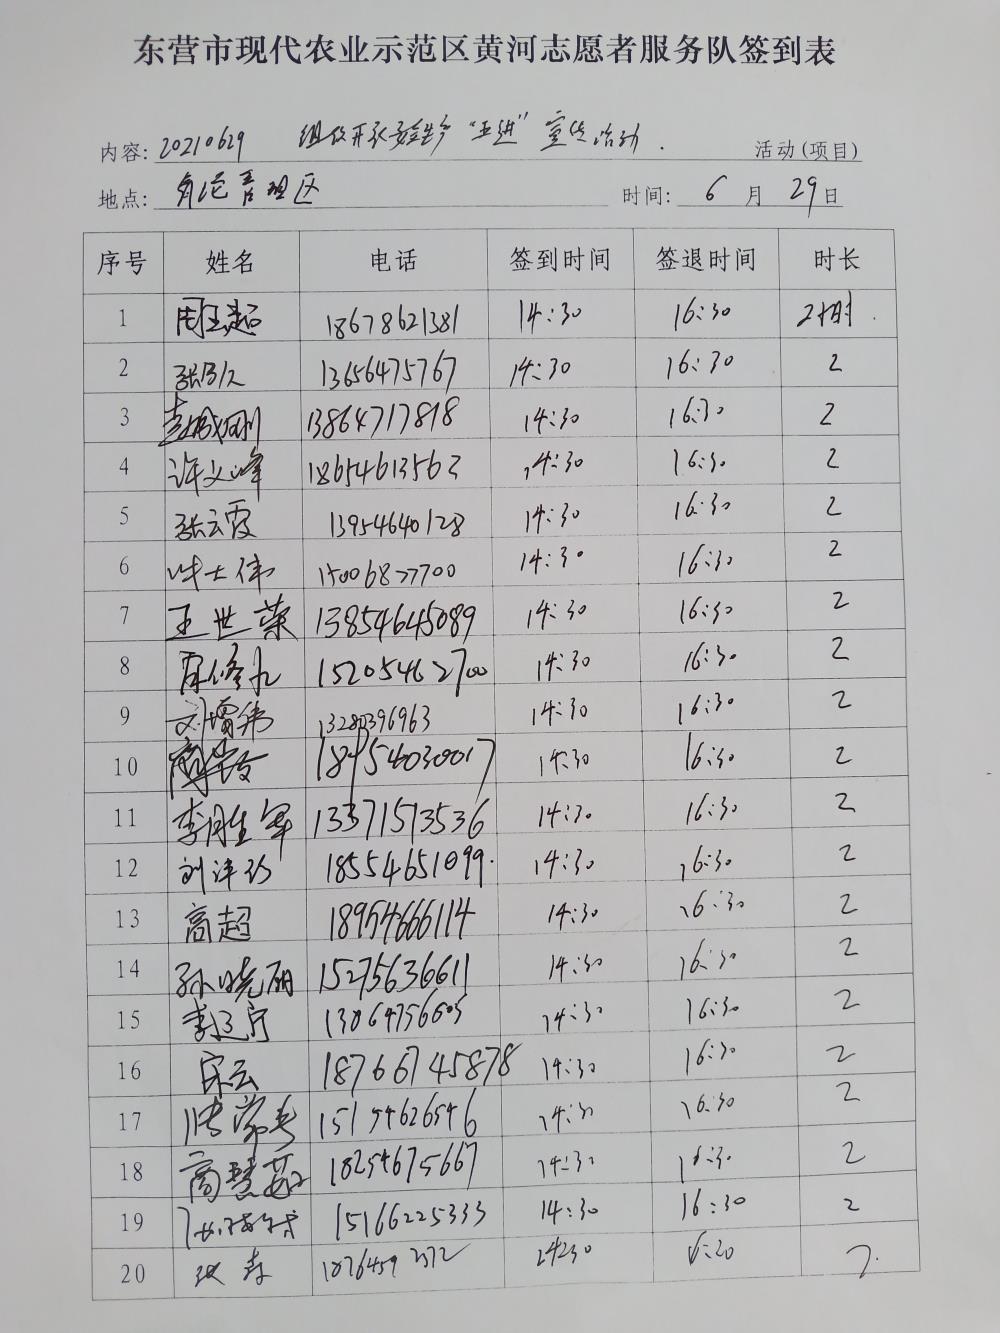 东营市现代农业示范区黄河志愿者服务队签到表
内容: 20210629 "五进" 宣传活动. 活动(项目)
地点: 管理区 时间: 6 月 29 日
序号 姓名 电话 签到时间 签退时间 时长
1 18678621381 14:30 16:30 2小时.
2 13656475767 14:30 16:30 2
3 13864717818 14:30 16:30 2
4 许文峰 18654613562 14:30 16:30 2
5 张云霞 13954640128 14:30 16:30 2
6 14:30 16:30 2
7 王世荣 13854645089 14:30 16:30 2
8 15205462700 14:30 16:30 2
9 13280396963 14:30 16:30 2
10 18454030017 14:30 16:30 2
11 李胜军 13371573536 14:30 16:30 2
12 18554651099. 14:30 16:30 2
13 高超 18954666114 14:30 16:30 2
14 孙晓丽 15275636611 14:30 16:30 2
15 14:30 16:30 2
16 宋云 18766745878 14:30 16:30 2
17 14:30 16:30 2
18 高慧茹 18254675667 14:30 16:30 2
19 15166225333 14:30 16:30 2
20 2.